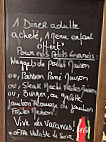 1 Diner adulte
acheté, 1 menu enfant
offert*
Pour nos petits Gourmets:
Nuggets de poulet Maison
ou, Poisson Pané Maison
ou, Steak Haché Maison
ou, Burger, au
Jambon
Frites Maison
Vive les Vacances!
* offre valable le soir